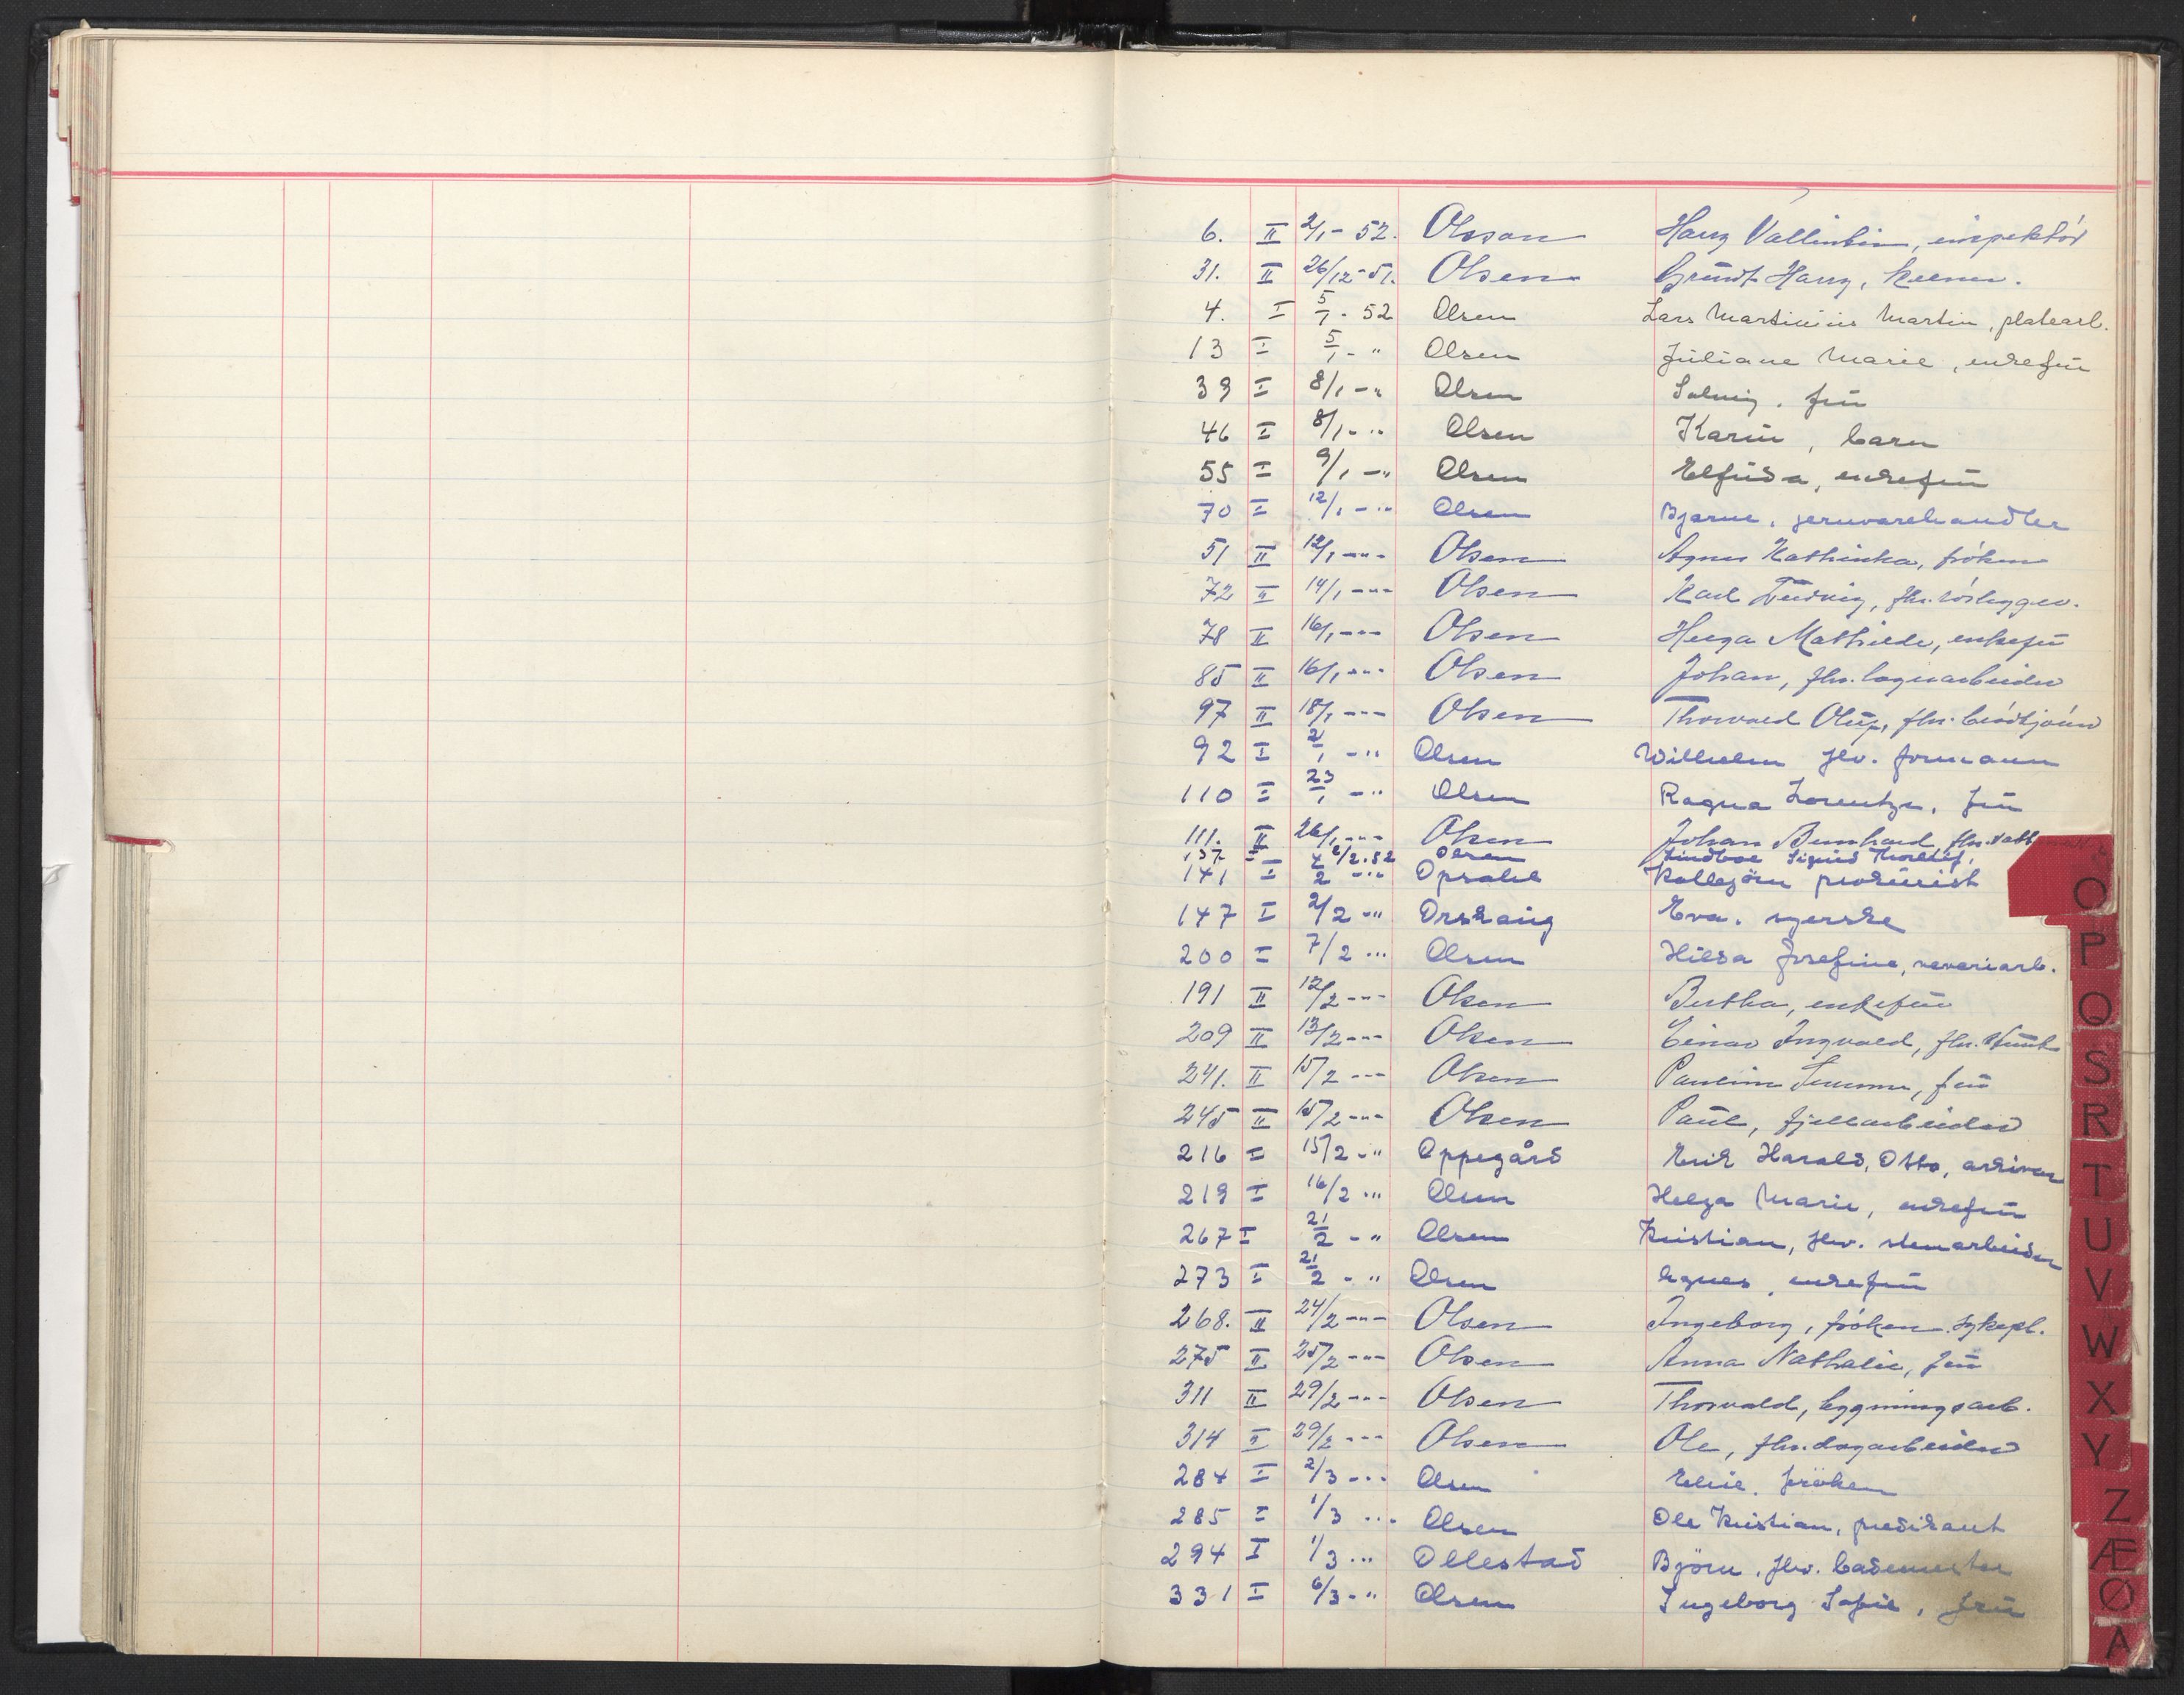 6. II 2/1 - 52. Olsson Harry Vallentin, inspektör
31. II 26/12 - 51. Olsen Gerindt Harry, kelner.
4. I 5/1 - 52 Olsen Lars Martinius Martin, platearb.
13 I 5/1 - " Olsen Juliane Marie, enkefrü
39 I 8/1 - " Olsen Solveig. frü
46 I 8/1 - " Olsen Karin, barn
55 I 9/1 - " Olsen Elfrida, enkefrü
70 I 12/1 - " Olsen Bjarne, jernvarehandler
51 II 12/1 - " - Olsen Agnes Kathinka, fröken
72 II 14/1 - " - Olsen Karl Ludvig, fhv. rörlegger.
78 II 16/1 - " - Olsen Helga Mathilde, enkefrü
85 II 16/1 - " - Olsen Johan, fhv. lagerarbeider
97 II 18/1 - " - Olsen Thorvald Oluf, fhv. brödkjörer
92 I 2/1 - " Olsen Wilhelm fhv. formann
110 I 23/1 - " Olsen Ragna Lorentze. frü
111. II 26/1 - " - Olsen Johan Bernhard, fhv.
137 I 2/2.52 Olsen Lindboe Sigurd Thorleif,
141 I 4/2 - " Opsahl Kallesjön prokurist
147 I 2/2 - " Orskaug Eva. syerske
200 I 7/2 - " Olsen Hilda Josefine, veveriarb.
191 II 12/2 - " - Olsen Bertha, enkefrü
209 II 13/2 - " - Olsen Einar Ingvald, fhv.
241. II 15/2 - " - Olsen Pauline, frü
245 II 15/2 - " - Olsen Paul, fjellarbeider
216 I 15/2 - " Oppegård Erik Harald, Otto, arkivar
219 I 16/2 - " Olsen Helga Marie, enkefrü
267 I 21/2 - " Olsen Kristian, fhv. stenarbeider
273 I 21/2 - " Olsen Agnes, enkefrü
268. II 24/2 - " - Olsen Ingeborg, fröken. sykepl.
275 II 25/2 - " - Olsen Anna Nathalie, frü
311 II 29/2 - " - Olsen Thorvald, bygningsarb.
314 II 29/2 - " - Olsen Ole, fhv. dagarbeider
284 I 2/3 - " Olsen Elise. fröken
285 I 1/3 - " Olsen Ole Kristian, predikant
294 I 1/3 - " Ollestad Björn, fhv. bademester
331 I 6/3 - " Olsen Ingeborg Sofie, frü
O
P
Q
S
R
T
U
V
W
X
Y
Z
Æ
Ø
A